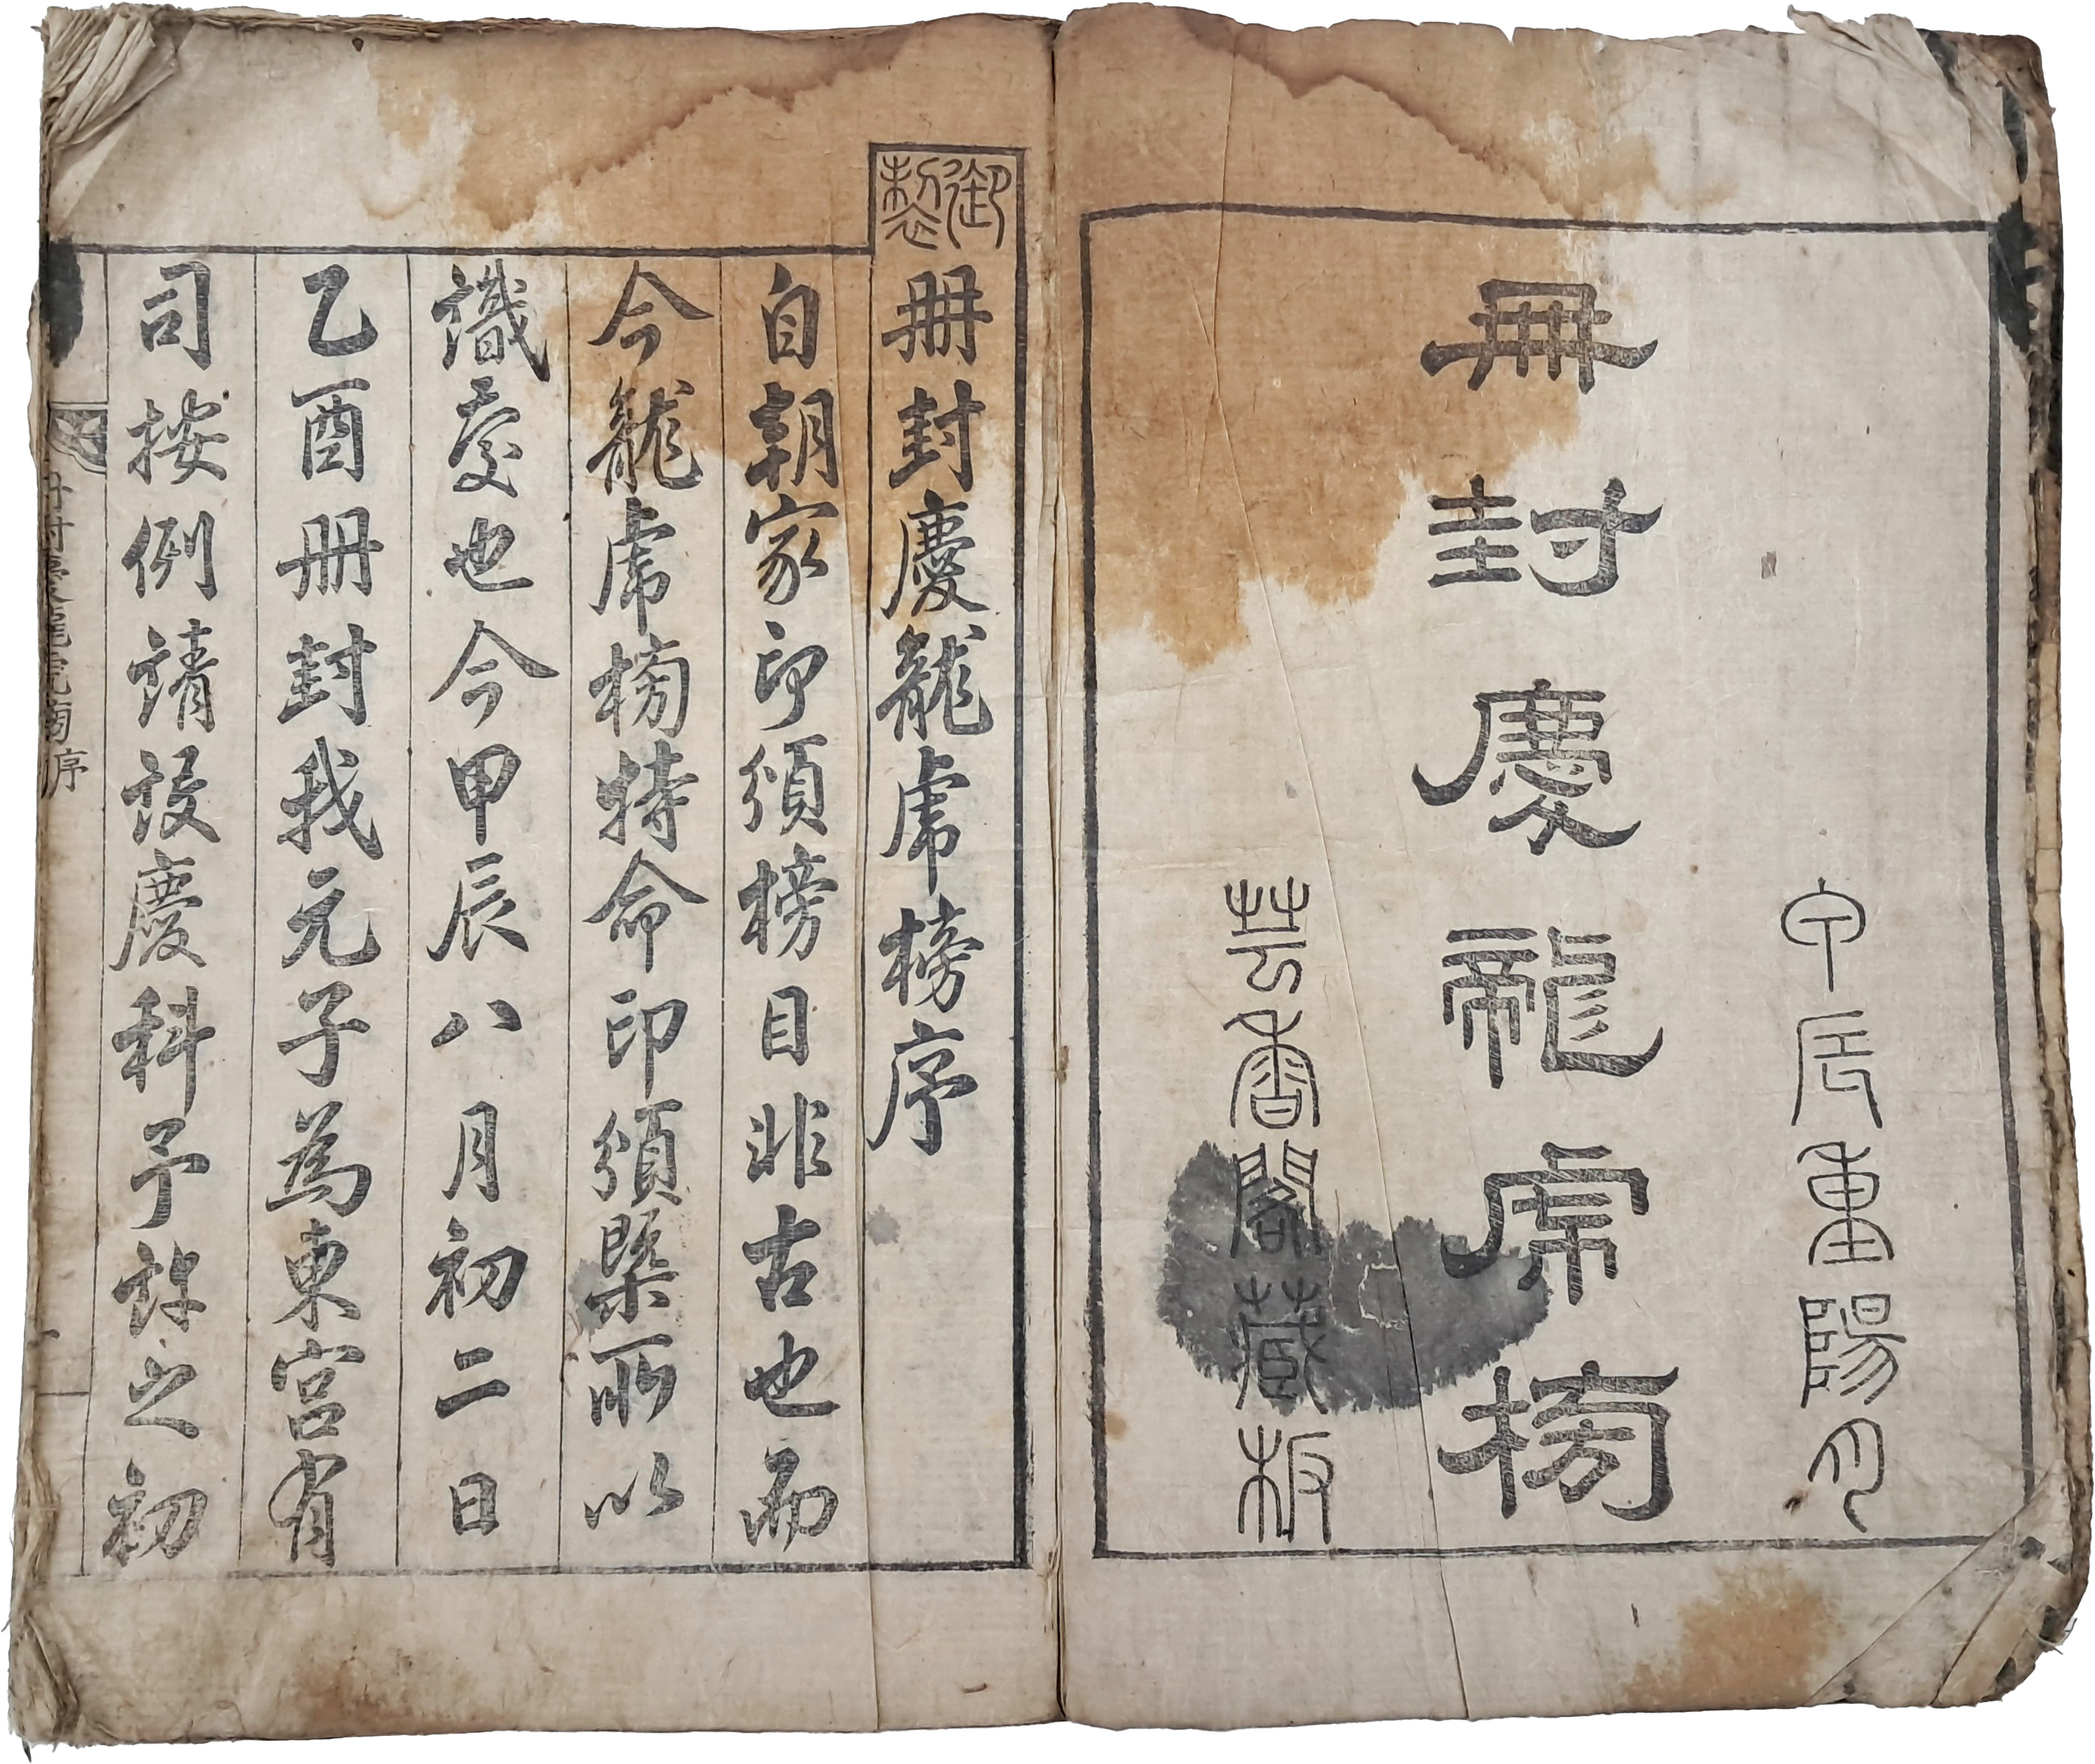 甲辰重陽月
冊封慶龍虎榜
芸香閣藏板
御製
冊封慶龍虎榜序
自朝家印頒榜目非古也而
今龍虎榜特命印頒槩所以
識慶也今甲辰八月初二日
乙酉冊封我元子為東宮有
司按例請設慶科予許之初
冊封慶龍虎榜序
一